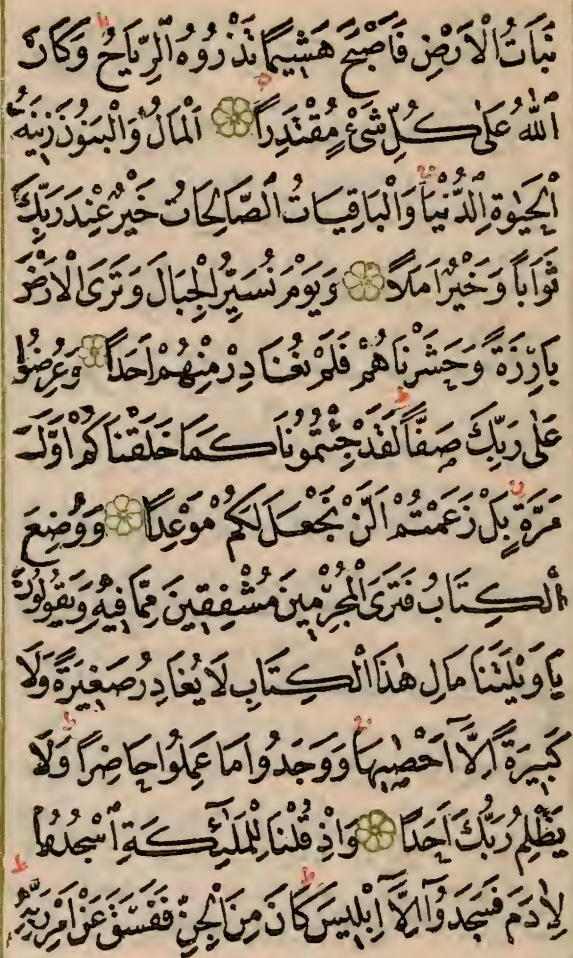 نَبَاتُ الْاَرْضِ فَاَصْبَحَ هَشٖيمًا تَذْرُوهُ الرِّيَاحُ ۜ وَكَانَ
اللّٰهُ عَلٰى كُلِّ شَیْءٍ مُقْتَدِرًا ۞ اَلْمَالُ وَالْبَنُونَ زٖينَةُ
الْحَيٰوةِ الدُّنْيَا ۚ وَالْبَاقِيَاتُ الصَّالِحَاتُ خَيْرٌ عِنْدَ رَبِّكَ
ثَوَابًا وَخَيْرٌ اَمَلًا ۞ وَيَوْمَ نُسَيِّرُ الْجِبَالَ وَتَرَى الْاَرْضَ
بَارِزَةً وَحَشَرْنَاهُمْ فَلَمْ نُغَادِرْ مِنْهُمْ اَحَدًا ۞ وَعُرِضُوا
عَلٰى رَبِّكَ صَفًّا ط لَقَدْ جِئْتُمُونَا كَمَا خَلَقْنَاكُمْ اَوَّلَ
مَرَّةٍ ز بَلْ زَعَمْتُمْ اَلَّنْ نَجْعَلَ لَكُمْ مَوْعِدًا ۞ وَوُضِعَ
الْكِتَابُ فَتَرَى الْمُجْرِمٖينَ مُشْفِقٖينَ مِمَّا فٖيهِ وَيَقُولُونَ
يَا وَيْلَتَنَا مَالِ هٰذَا الْكِتَابِ لَا يُغَادِرُ صَغٖيرَةً وَلَا
كَبٖيرَةً اِلَّٓا اَحْصٰيهَا ۚ وَوَجَدُوا مَا عَمِلُوا حَاضِرًا ط وَلَا
يَظْلِمُ رَبُّكَ اَحَدًا ۞ وَاِذْ قُلْنَا لِلْمَلٰٓئِكَةِ اسْجُدُوا
لِاٰدَمَ فَسَجَدُٓوا اِلَّٓا اِبْلٖيسَ ط كَانَ مِنَ الْجِنِّ فَفَسَقَ عَنْ اَمْرِ رَبِّهٖ ط